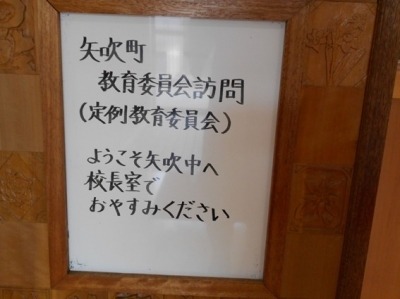 矢吹町
教育委員会訪問
(定例教育委員会)
ようこそ矢吹中へ
校長室で
おやすみください